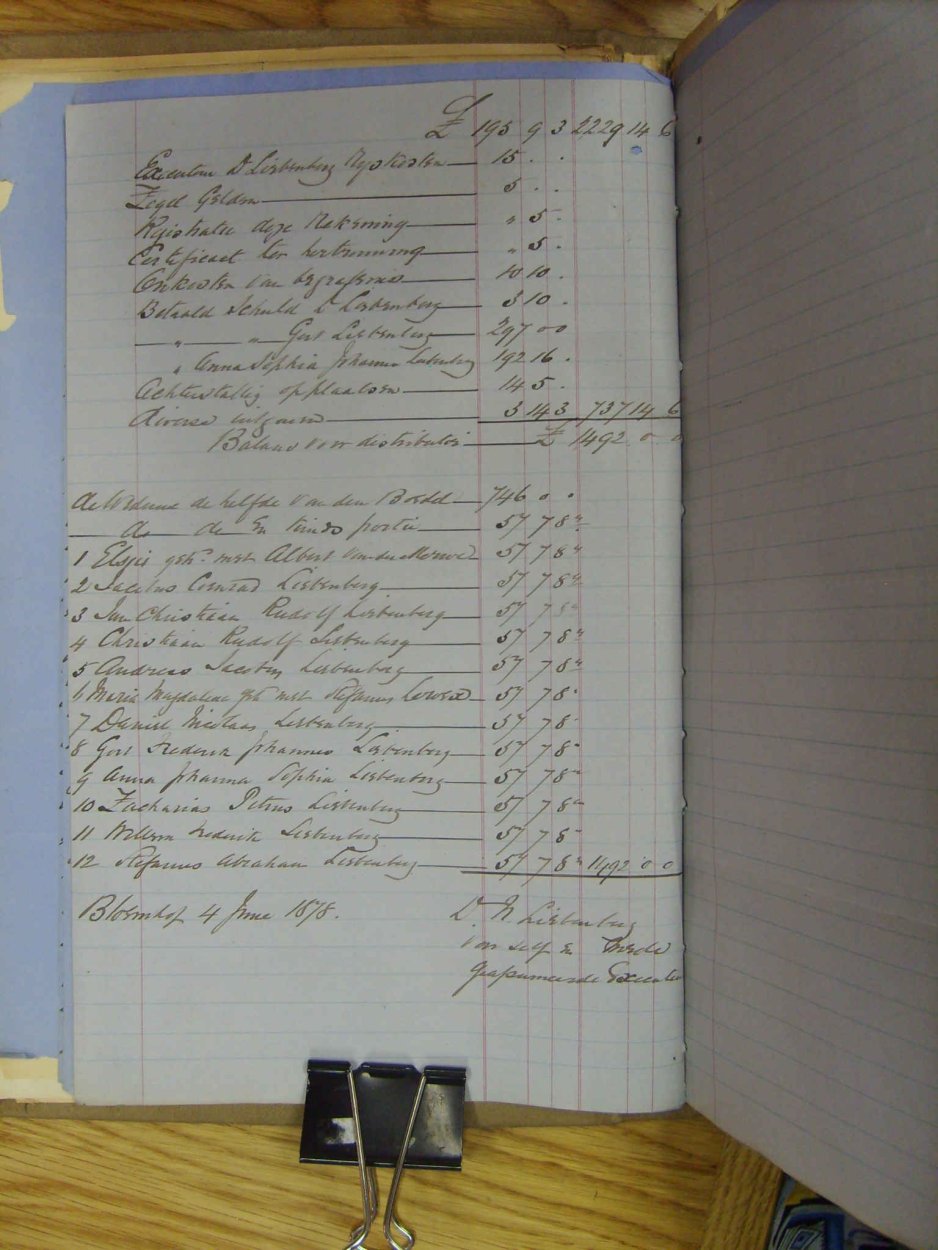 £ 195 9 3 2229 14 6
Executeur D Liebenberg Rys Kosten 15 . .
Zegel Gelden 5 . .
Registratie deze Rekening " 5 .
Certificaat ter 
 " 5 .
Onkosten van begrafenis 10 10 .
Betaald Schuld D Liebenberg 3 10 .
" " Gert Liebenberg 297 0 0
" Anna Sophia Johanna Liebenberg 192 16 .
Achterstallig op plaatsen 14 5 .
Diverse uitgaven 3 14 3 737 14 6
Balans voor distributie £ 1492 0 0
de Weduwe de helfde van den Boedel 746 0 0
do de En kinds portie 57 7 8
1 Elsjie geh. met Albert van der Merwe 57 7 8
2 Jacobus Conrad Liebenberg 57 7 8
3 Jan Christiaan Rudolf Liebenberg 57 7 8
4 Christiaan Rudolf Liebenberg 57 7 8
5 Andreas Jacobus Liebenberg 57 7 8
6 Maria Magdalena geh met Stefanus 57 7 8
7 Daniel Nicolaas Liebenberg 57 7 8
8 Gert Frederik Johannes Liebenberg 57 7 8
9 Anna Johanna Sophia Liebenberg 57 7 8
10 Zacharias Petrus Liebenberg 57 7 8
11 Willem Frederik Liebenberg 57 7 8
12 Stefanus Abraham Liebenberg 57 7 8 1492 0 0
Bloemhof 4 June 1878.
D. N. Liebenberg
voor self en mede
Geassumeerde Executeur